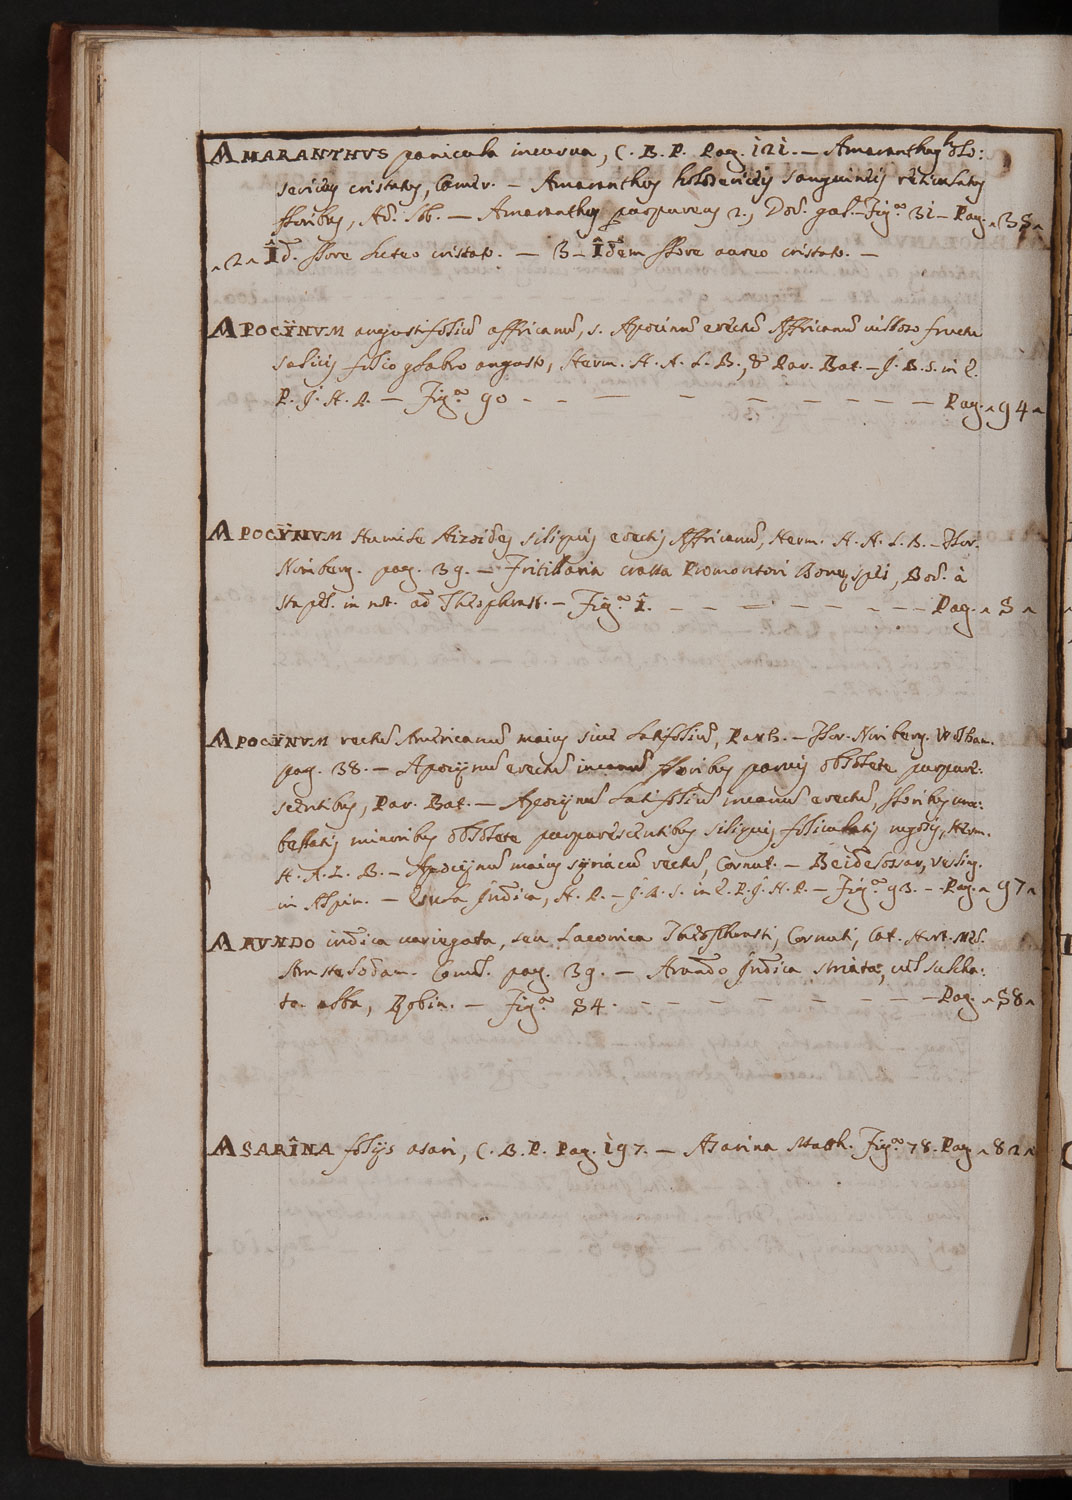 AMARANTHVS panicula incurva, C. B. P. Pag. 121. — Amaranthus holo:
sericus cristatus, Camer. — Amaranthus holosericus sanguineis reticulatis
floribus, Ad. Lob. — Amaranthus purpureus 2., Dod. gal. — Figᵃ 31 — Pag. ^ 35 ^
^ 2 ^ Id. flore luteo cristato. — 3 — Idem flore aureo cristato. —
APOCŸNVM angustifoliū affricanū, s. Apocinū erectū Affricanū villoso fructu
salicis folio glabro angusto, Herm. H. A. L. B., & Par. Bat. — J. B. s. in E.
P. J. H. P. — Figᵃ 90 - - - — - — - — - — Pag. ^ 94 ^
APOCŸNVM Humile Aizoides siliquis erectis Affricanū, Herm. H. A. L. B. — Flor.
Nörimberg. pag. 39. — Fritillaria crassa Promontori Bonæ spei, Bod. à
Stapel. in not. ad Theophrast. — Figᵃ 1. — - - - - - - — Pag. ^ 5 ^
APOCŸNVM rectū Americanū maius sive latifoliū, Park. — Flor. Norimberg. Volkam.
pag. 38. — Apocijnū erectū incanū floribus parvis obsolete purpure:
scentibus, Par. Bat. — Apocijnū latifoliū incanū erectū, floribus um:
bellatis minoribus obsolete purpurescentibus siliquis foliculatis rugosis, Herm.
H. A. L. B. — Apocijnū maius syriacū rectū, Cornut. — Beidelossar, Vesling.
in Alpin. — Esula Indica, H. P. — J. B. s. in E. P. J. H. P. — Figᵃ 93. — Pag. ^ 97 ^
ARVNDO indica variegata, seu Laconica Theophrasti, Cornuti, Cat. Hort. Med.
Amstelodam. Comel. pag. 39. — Arundo Indica striata, vel sulcha:
ta alba, Robin. — Figᵃ 54. — - - - - - — — Pag. ^ 58 ^
ASARINA folijs asari, C. B. P. Pag. 197. — Asarina Matth. Figᵃ 78. Pag. ^ 82 ^